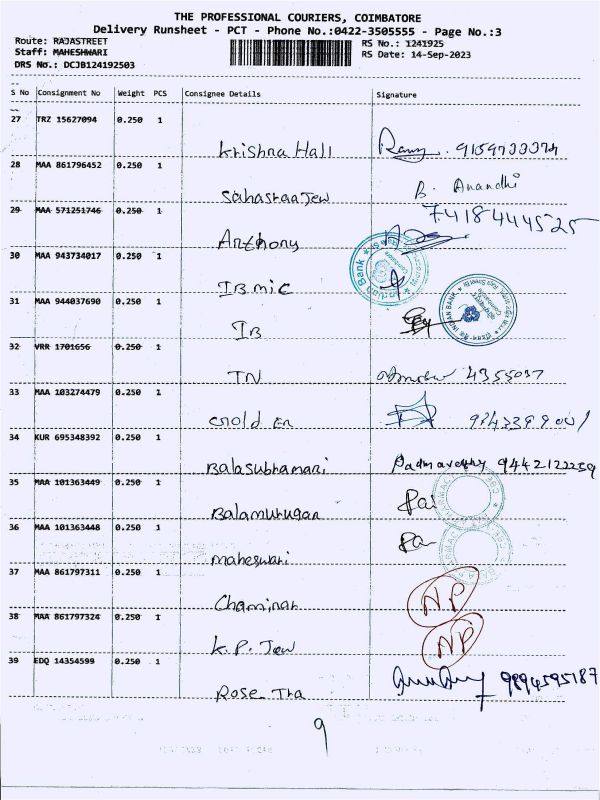 THE PROFESSIONAL COURIERS, COIMBATORE
Delivery Runsheet - PCT - Phone No.:0422-3505555 - Page No.:3
Route: RAJASTREET
RS No.: 1241925
Staff: MAHESHWARI
RS Date: 14-Sep-2023
DRS No.: DCJB124192503
S No Consignment No Weight PCS Consignee Details Signature
27 TRZ 15627094 0.250 1
Krishna Hall
28 MAA 861796452 0.250 1
B. Anandhi
29 MAA 571251746 0.250 1
7418444525
Anthony
30 MAA 943734017 0.250 1
Indian Bank
IB mic
31 MAA 944037690 0.250 1
INDIAN BANK
IB
32 VRR 1701656 0.250 1
TN 4355037
33 MAA 103274479 0.250 1
Gold En
34 KUR 695348392 0.250 1
Balasubramani Padmavathy 9442122239
35 MAA 101363449 0.250 1
Balamurugan
36 MAA 101363448 0.250 1
maheswari
37 MAA 861797311 0.250 1
NP
38 MAA 861797324 0.250 1
NP
K.P. Jew
39 EDQ 14354599 0.250 1
9894595187
Rose Tra
9